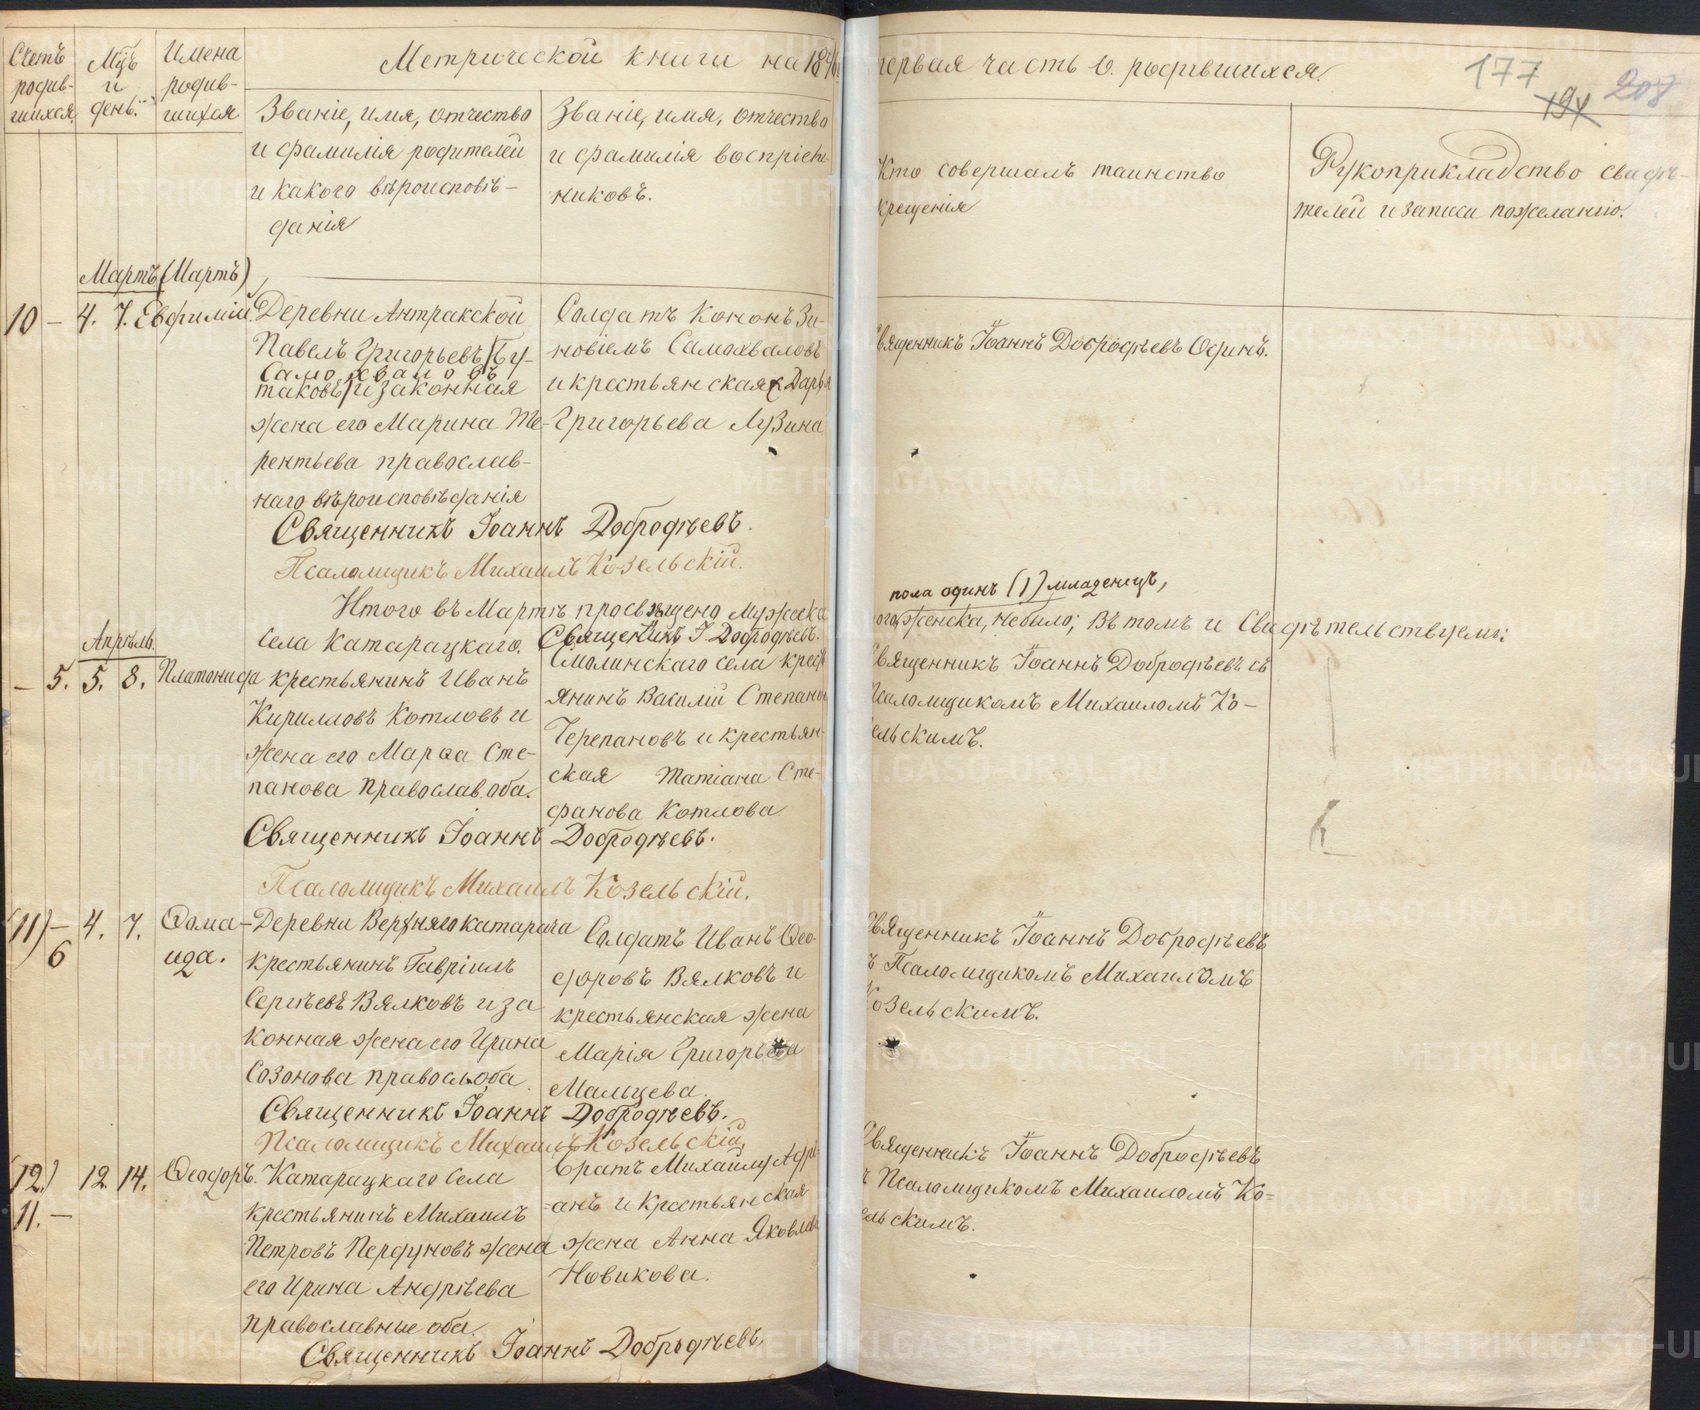 Метрической книги на 18
первая часть о родившихся.
177
194
208
Счетъ родив- шихся.
Мць и день.
Имена родив- шихся
Званіе, имя, отчество
и фамилія родителей
и какого вѣроисповѣ-
данія
Званіе, имя, отчество
и фамилія воспріем-
никовъ.
Кто совершалъ таинство
крещенія
Рукоприкладство свидѣ-
телей и записи по желанію.
Мартъ (Мартъ)
10 – 4. 7. Евфимій.
Деревни Антракской
Павелъ Григорьевъ (Бу-
Самохваловъ
таковъ) и законная
жена его Марина Те-
рентьева православ-
наго вѣроисповѣданія
Солдатъ Кононъ Зи-
новіемъ Самохваловъ
и крестьянская Дарья
Григорьева Лузина
Священникъ Іоаннъ Добродѣевъ Одинъ.
Священникъ Іоаннъ Добродѣевъ.
Псаломщикъ Михаилъ Козельскій.
Итого въ Мартѣ просвѣщено мужска
пола одинъ (1) младенецъ,
женска, небыло; Въ томъ и Свидѣтельствуемъ:
Священникъ І. Добродѣевъ.
Апрѣль.
– 5. 5. 8. Платонида
Села Катарацкаго.
крестьянинъ Иванъ
Кирилловъ Котловъ и
жена его Марѳа Сте-
панова православ. оба.
Смолинскаго села крест
янинъ Василій Степанов
Черепановъ и крестьян-
ская Татіана Сте-
фанова Котлова
Священникъ Іоаннъ Добродѣевъ съ
Псаломщикомъ Михаиломъ Ко-
ельскимъ.
Священникъ Іоаннъ Добродѣевъ.
Псаломщикъ Михаилъ Козельскій.
(11) – 6 4. 7. Ѳома- ида.
Деревни Верхняго Катарача
крестьянинъ Гавріилъ
Сергѣевъ Вялковъ и за
конная жена его Ирина
Созонова правосл. оба.
Солдатъ Иванъ Ѳео-
доровъ Вялковъ и
крестьянская жена
Марія Григорьева
Мальцева.
Священникъ Іоаннъ Добродѣевъ
ъ Псаломщикомъ Михаиломъ
Козельскимъ.
Священникъ Іоаннъ Добродѣевъ.
Псаломщикъ Михаилъ Козельскій
(12.) 11. – 12. 14. Ѳеодоръ.
Катарацкаго Села
крестьянинъ Михаилъ
Петровъ Пердуновъ жена
его Ирина Андрѣева
православные оба.
Братъ Михаилу Адрі-
анъ и крестьянская
жена Анна Яковлев
Новикова.
Священникъ Іоаннъ Добродѣевъ
ъ Псаломщикомъ Михаиломъ Ко=
ельскимъ.
Священникъ Іоаннъ Добродѣевъ,